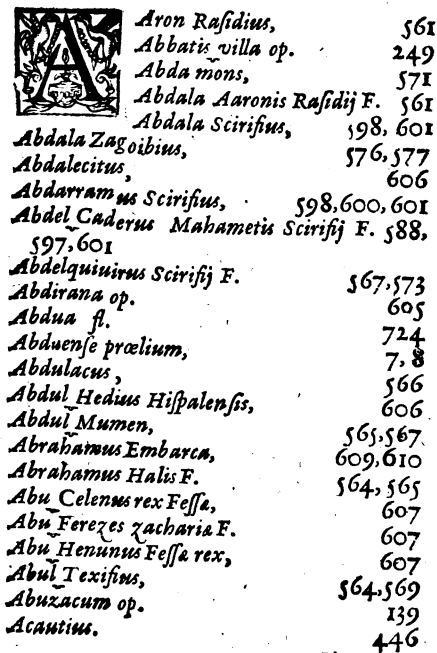 AAron Raſidius, 561
Abbatis villa op. 249
Abda mons, 571
Abdala Aaronis Raſidij F. 561
Abdala Scirifius, 598, 601
Abdala Zagoibius, 576,577
Abdalecitus, 606
Abdarramus Scirifius, 598,600,601
Abdel Caderus Mahametis Scirifij F. 588,
597,601
Abdelquiuirus Scirifij F. 567,573
Abdirana op. 605
Abdua fl. 724
Abduenſe prœlium, 7,8
Abdulacus, 566
Abdul Hedius Hiſpalenſis, 606
Abdul Mumen, 565,567
Abrahamus Embarca, 609,610
Abrahamus Halis F. 564,565
Abu Celenus rex Feſſæ, 607
Abu Ferezes zachariæ F. 607
Abu Henunus Feſſæ rex, 607
Abul Texifius, 564,569
Abuzacum op. 139
Acautius. 446